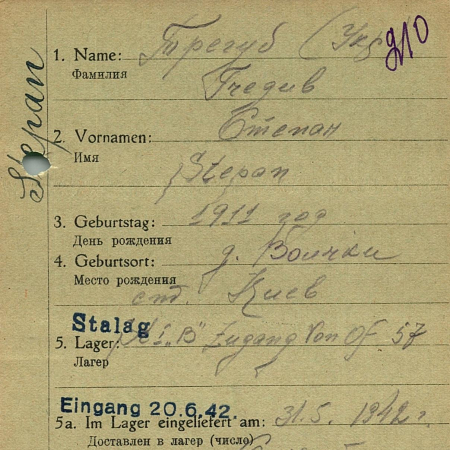 210
1. Name: Трегуб (Укр
Фамилия
Tregub
Stepan
2. Vornamen: Степан
Имя
Stepan
3. Geburtstag: 1911 год
День рождения
4. Geburtsort: д. Волчки
Место рождения
Киев
Stalag
5. Lager: "B" Zugang Von Of. 57
Лагерь
Eingang 20.6.42.
5a. Im Lager eingeliefert am: 31.5. 1942 г.
Доставлен в лагерь (число)